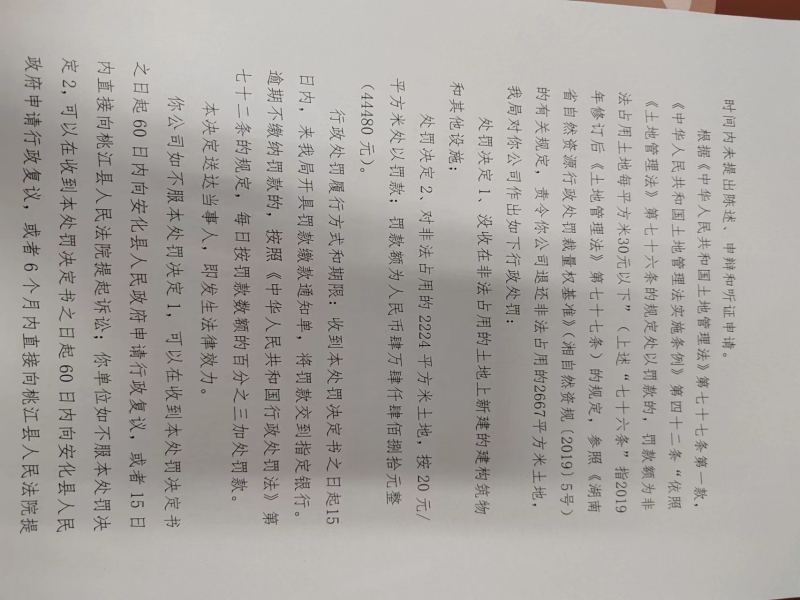 时间内未提出陈述、申辩和听证申请。
根据《中华人民共和国土地管理法》第七十七条第一款，
《中华人民共和国土地管理法实施条例》第四十二条“依照
《土地管理法》第七十六条的规定处以罚款的，罚款额为非
法占用土地每平方米30元以下”（上述“七十六条”指2019
年修订后《土地管理法》第七十七条）的规定，参照《湖南
省自然资源行政处罚裁量权基准》（湘自然资规〔2019〕5号）
的有关规定，责令你公司退还非法占用的2667平方米土地，
我局对你公司作出如下行政处罚：
处罚决定1、没收在非法占用的土地上新建的建构筑物
和其他设施；
处罚决定2、对非法占用的2224平方米土地，按20元/
平方米处以罚款；罚款额为人民币肆万肆仟肆佰捌拾元整
（44480元）。
行政处罚履行方式和期限：收到本处罚决定书之日起15
日内，来我局开具罚款缴款通知单，将罚款交到指定银行。
逾期不缴纳罚款的，按照《中华人民共和国行政处罚法》第
七十二条的规定，每日按罚款数额的百分之三加处罚款。
本决定送达当事人，即发生法律效力。
你公司如不服本处罚决定1，可以在收到本处罚决定书
之日起60日内向安化县人民政府申请行政复议，或者15日
内直接向桃江县人民法院提起诉讼；你单位如不服本处罚决
定2，可以在收到本处罚决定书之日起60日内向安化县人民
政府申请行政复议，或者6个月内直接向桃江县人民法院提